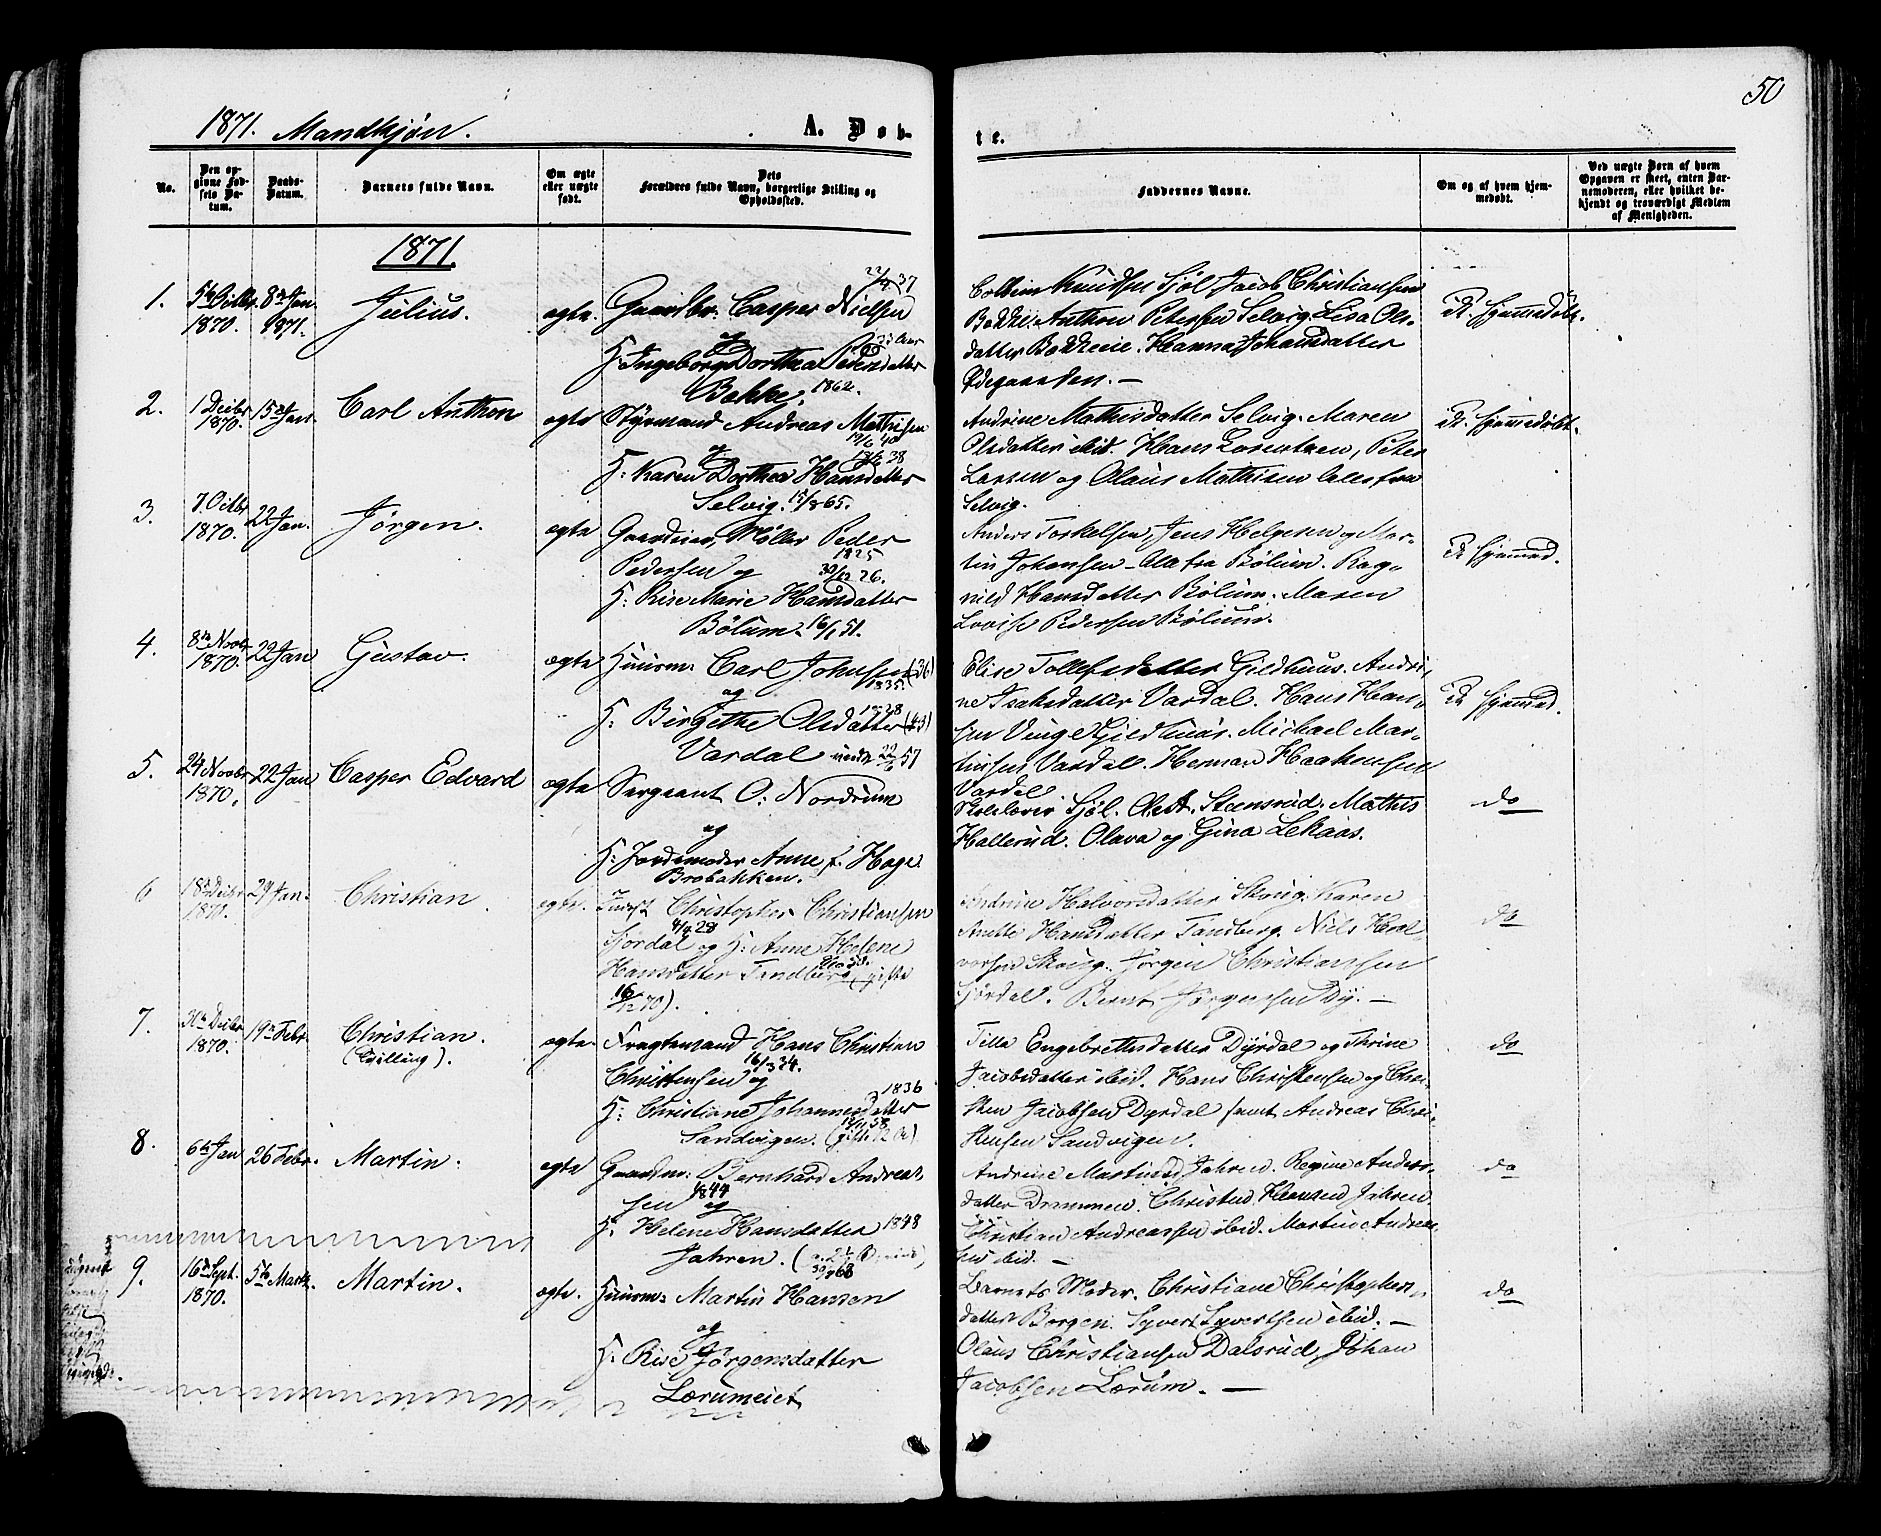 50
1871. Mandkjøn. A. Døb-
te.
No.
Den op-
givne Fød-
sels Da-
tum.
Daabs-
Datum.
Barnets fulde Navn.
Om ægte
eller uægte
født.
Dets
Forældres fulde Navn, borgerlige Stilling og
Opholdssted.
Faddernes Navne.
Om og af hvem hjem-
medøbt.
Ved uægte Børn af hvem
Opgaven er skeet, enten Bar-
nemoderen, eller hvilket be-
kjendt og troværdigt Medlem
af Menigheden.
1871.
1. 5te Octbr. 1870. 8de Jan. 1871. Julius. ægte. Gaardbr. Casper Nielsen
og
H: Ingeborg Dorthea Pedersdatter
Bakke. 1862.
Knudsen Sjöl Jacob Christiansen
Anthon Petersen Selvig. Lisa Ols-
datter Hanna Johansdatter
Ødegaarden. —
2. 1 Decbr 1870. 15de Jan. Carl Anthon ægte Styrmand Andreas Mathisen
19/6 40
og
H: Karen Dorthea Hansdatter
Selvig. 15/8 65.
Andrine Mathisdatter Selvig. Maren
Olsdatter ibid. Hans Lorentzen, Peter
Larsen og Olaus Mathisen alle fra
Selvig.
3. 7 Octbr 1870. 22 Jan. Jørgen. ægte Gaardeier, Møller Peder
1825
Pedersen og 30/12 26.
H: Rise Marie Hansdatter
Bölum. 16/1 51.
Anders Torkelsen, Jens Helgesen og Mar-
tin Johansen Alle fra Bölum. Rag-
nild Hansdatter Bölum. Maren
Lovise Pedersen Bölum.
4. 8de Novbr 1870. 22 Jan Gustav. ægte Huusm. Carl Johnsen (36)
1835.
og 1828
H: Birgithe Olsdatter (43)
Vardal
Elise Tollefsdatter Gjeldhuus. Andri-
ne Isaksdatter Vardal. Hans Han-
sen Vinge Gjeldhuus. Michael Mar-
tinsen Vardal. Herman Haakensen
Vardal
5. 24 Novbr 1870. 22 Jan Casper Edvard ægte Sergeant O: Nordrum
og
H: Jordemoder Anne f. Hage
Brobakken.
Skolelærer Sjöl. Ole A. Steensrud. Mathis
Hallerud. Olava og Gina Lekaas.
do
6 18de Decbr 1870. 29 Jan. Christian ægte. Christopher Christiansen
4/9 28
Fjordal og H: Anne Helene
Hansdatter Tandberg (gifte
16/12 70).
Andrine Halvorsdatter Skoug. Karen
Anette Hansdatter Tandberg. Niels Hal-
vorsen Skoug. Jörgen Christiansen
Fjordal. Bernt Jörgensen Dy. —
do
7. 31te Decbr 1870. 19de Febr. Christian.
(Tvilling).
ægte. Fragtemand Hans Christian
16/3 34.
Christensen og 1836
H: Christiane Johannesdatter
Sandvigen.
Engebrettesdatter Dyrdal og Thrine
Jacobsdatter ibid. Hans Christensen og Chri-
sten Jacobsen Dyrdal samt Andreas Chri-
stensen Sandvigen.
do
8. 6te Jan 26 Febr. Martin. ægte Gaardm: Bernhard Andreas-
sen 1844 og
H: Helene Hansdatter 1848
Jahren.
Andrine Jahren. Regine Anders-
datter Drammen. Christen Hansen Jahren
Christian Andreassen ibid. Martin Andreas-
sen ibid. —
do
9. 16de Sept. 1870. 5te Marts. Martin. ægte. Huusm: Martin Hansen
og
H: Rise Jörgensdatter
Lærumeiet
Barnets Moder. Christiane Christophers-
datter Borgen. Syvert Syvertsen ibid. —
Olaus Christiansen Dalsrud, Johan
Jacobsen Lærum. —
do